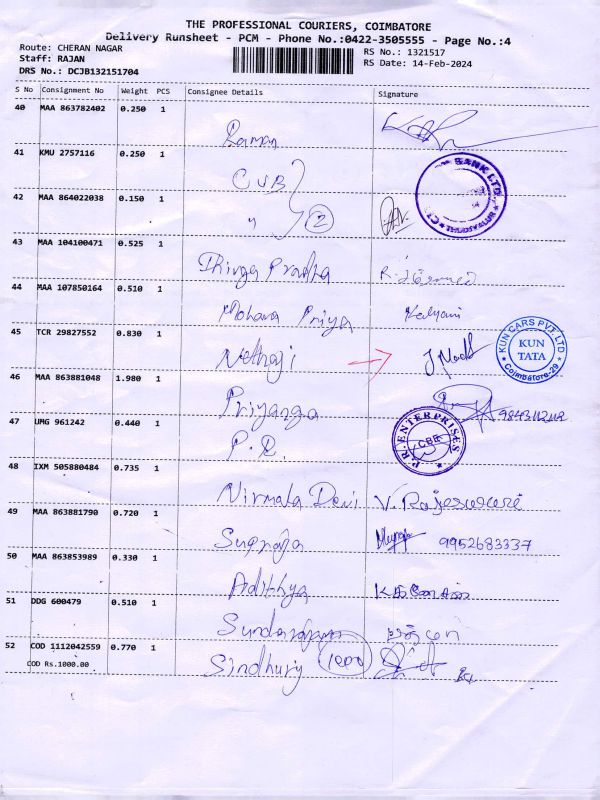 THE PROFESSIONAL COURIERS, COIMBATORE
Delivery Runsheet - PCM - Phone No.:0422-3505555 - Page No.:4
Route: CHERAN NAGAR
RS No.: 1321517
Staff: RAJAN
RS Date: 14-Feb-2024
DRS No.: DCJB132151704
S No Consignment No Weight PCS Consignee Details Signature
40 MAA 863782402 0.250 1
Raman
41 KMU 2757116 0.250 1
CUB
BANK LTD
42 MAA 864022038 0.150 1
" 2
43 MAA 104100471 0.525 1
Thivya Pradha
44 MAA 107850164 0.510 1
Mohana Priya Kalyani
45 TCR 29827552 0.830 1
Nethaji
KUN CARS PVT. LTD
KUN
TATA
Coimbatore-29
46 MAA 863881048 1.980 1
Priyanga 9843112112
47 UMG 961242 0.440 1
P.R.
P.R.ENTERPRISES
CBE
48 IXM 505880484 0.735 1
Nirmala Devi V. Rajeswari
49 MAA 863881790 0.720 1
Supraja 9952683337
50 MAA 863853989 0.330 1
Adithya
51 DDG 600479 0.510 1
Sundarajan
52 COD 1112042559 0.770 1
COD Rs.1000.00
Sindhury 1000